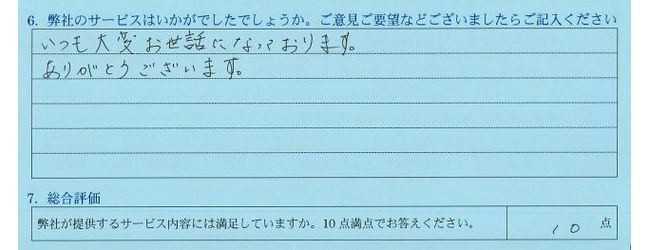 6. 弊社のサービスはいかがでしたでしょうか。ご意見ご要望などございましたらご記入ください
いつも大変お世話になっております。
ありがとうございます。
7. 総合評価
弊社が提供するサービス内容には満足していますか。10点満点でお答えください。 10 点